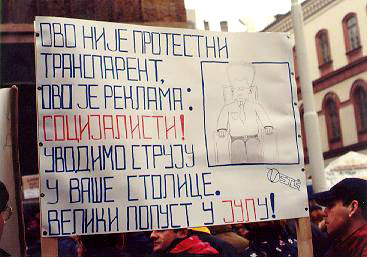 ОВО НИЈЕ ПРОТЕСТНИ
ТРАНСПАРЕНТ,
ОВО ЈЕ РЕКЛАМА:
СОЦИЈАЛИСТИ!
УВОДИМО СТРУЈУ
У ВАШЕ СТОЛИЦЕ.
ВЕЛИКИ ПОПУСТ У ЈУЛУ!